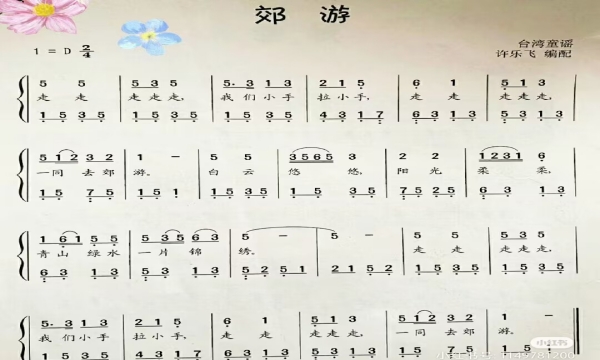 郊 游
1 = D 2/4
台湾童谣
许乐飞 编配
5 5 | 5 3 5 | 5· 3 1 3 | 2 1 5 | 6 1 | 5 1 3
走 走 走走走, 我们小手 拉小手, 走 走 走走走,
1 5 3 5 | 1 5 3 5 | 6 3 1 3 | 4 3 1 7 | 6 3 1 3 | 1 5 3 5
5 1 2 3 2 | 1 - | 5 5 | 3 5 6 5 3 | 2 2 | 1 2 3 1 6
一同 去郊 游。 白 云 悠 悠, 阳 光 柔 柔,
1 5 7 5 | 1 5 3 5 | 1 5 3 5 | 1 5 3 5 | 7 5 7 5 | 6 3 1 3
1 6 1 5 5 | 5 3 5 6 3 | 5 - | 5 - | 5 5 | 5 3 5
青山 绿水 一片 锦 绣。 走 走 走走走,
6 3 1 3 | 1 3 5 3 | 5 2 5 1 | 5 2 5 1 | 1 5 3 5 | 1 5 3 5
5· 3 1 3 | 2 1 5 | 6 1 | 5 1 3 | 5 1 2 3 2
我们小手 拉小手, 走 走 走走走, 一同 去郊 游。
小红书